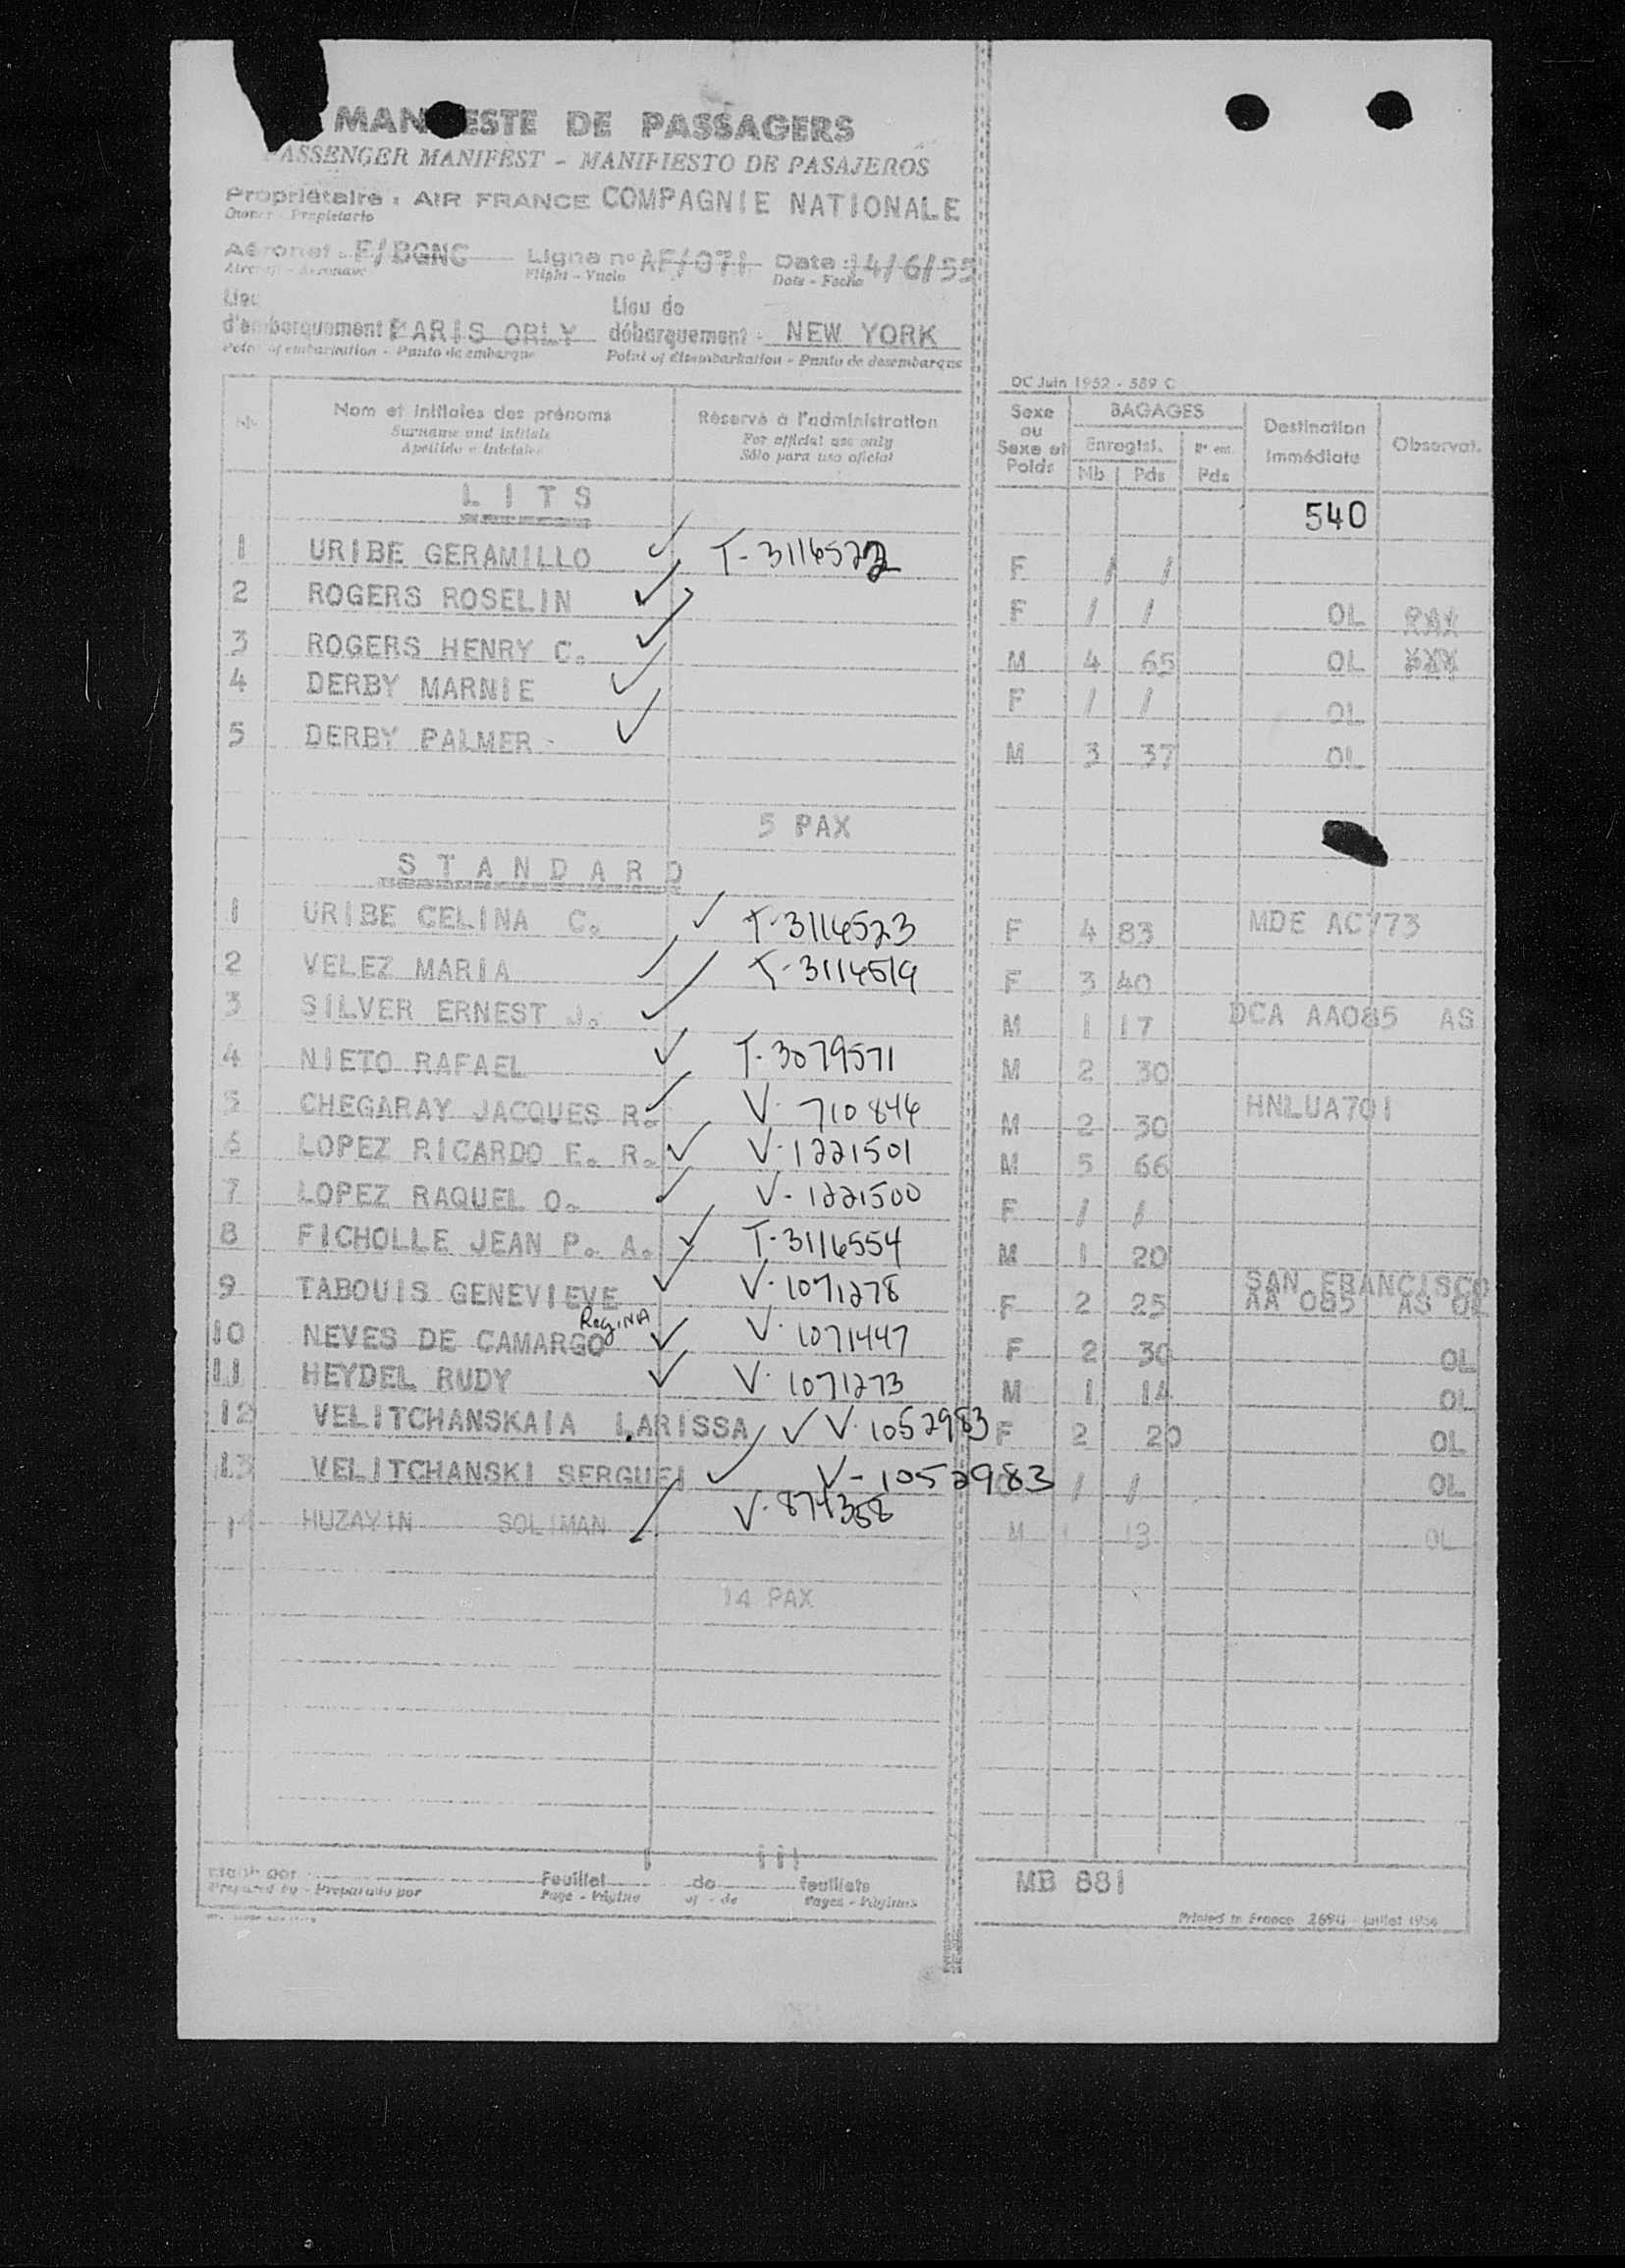 MAN ESTE DE PASSAGERS
PASSENGER MANIFEST - MANIFIESTO DE PASAJEROS
Propriétaire : AIR FRANCE COMPAGNIE NATIONALE
Owner - Propietario
Aéronef F/BGNC Ligne n° AF/071 Date 14/6/55
Aircraft - Aeronave Flight - Vuelo Date - Fecha
Lieu d'embarquement PARIS ORLY Lieu de débarquement : NEW YORK
Point of embarkation - Punto de embarque Point of disembarkation - Punto de desembarque
DC Juin 1952 - 589 C
Nom et initiales des prénoms Réservé à l'administration Sexe ou Sexe et Poids BAGAGES Destination immédiate Observat.
Surname and initials For official use only Enregist.
Apellido e iniciales Sólo para uso oficial Nb Pds Pds
LITS 540
1 URIBE GERAMILLO ✓ T-3116522 F / /
2 ROGERS ROSELIN ✓ F / / OL
3 ROGERS HENRY C. ✓ M 4 65 OL
4 DERBY MARNIE ✓ F / / OL
5 DERBY PALMER ✓ M 3 37 OL
5 PAX
STANDARD
1 URIBE CELINA C. ✓ T-3116523 F 4 83 MDE AC773
2 VELEZ MARIA ✓ T-3116519 F 3 40
3 SILVER ERNEST J. ✓ M 1 17 DCA AA085 AS
4 NIETO RAFAEL ✓ T-3079571 M 2 30
5 CHEGARAY JACQUES R. ✓ V-710846 M 2 30 HNLUA701
6 LOPEZ RICARDO E. R. ✓ V-1221501 M 5 66
7 LOPEZ RAQUEL O. ✓ V-1221500 F / /
8 FICHOLLE JEAN P. A. ✓ T-3116554 M 1 20
9 TABOUIS GENEVIEVE ✓ V-1071278 F 2 25 SAN FRANCISCO
AA 085 AS OL
Regina
10 NEVES DE CAMARGO ✓ V-1071447 F 2 30 OL
11 HEYDEL RUDY ✓ V-1071273 M 1 14 OL
12 VELITCHANSKAIA LARISSA ✓ V-1052983 F 2 20 OL
13 VELITCHANSKI SERGUEI ✓ V-1052983 / / OL
14 HUZAYIN SOLIMAN ✓ V-874358 M 13 OL
14 PAX
Feuillet de feuillets MB 881
Prepared by - Preparado por Page - Página of - de Pages - Páginas
Printed in France juillet